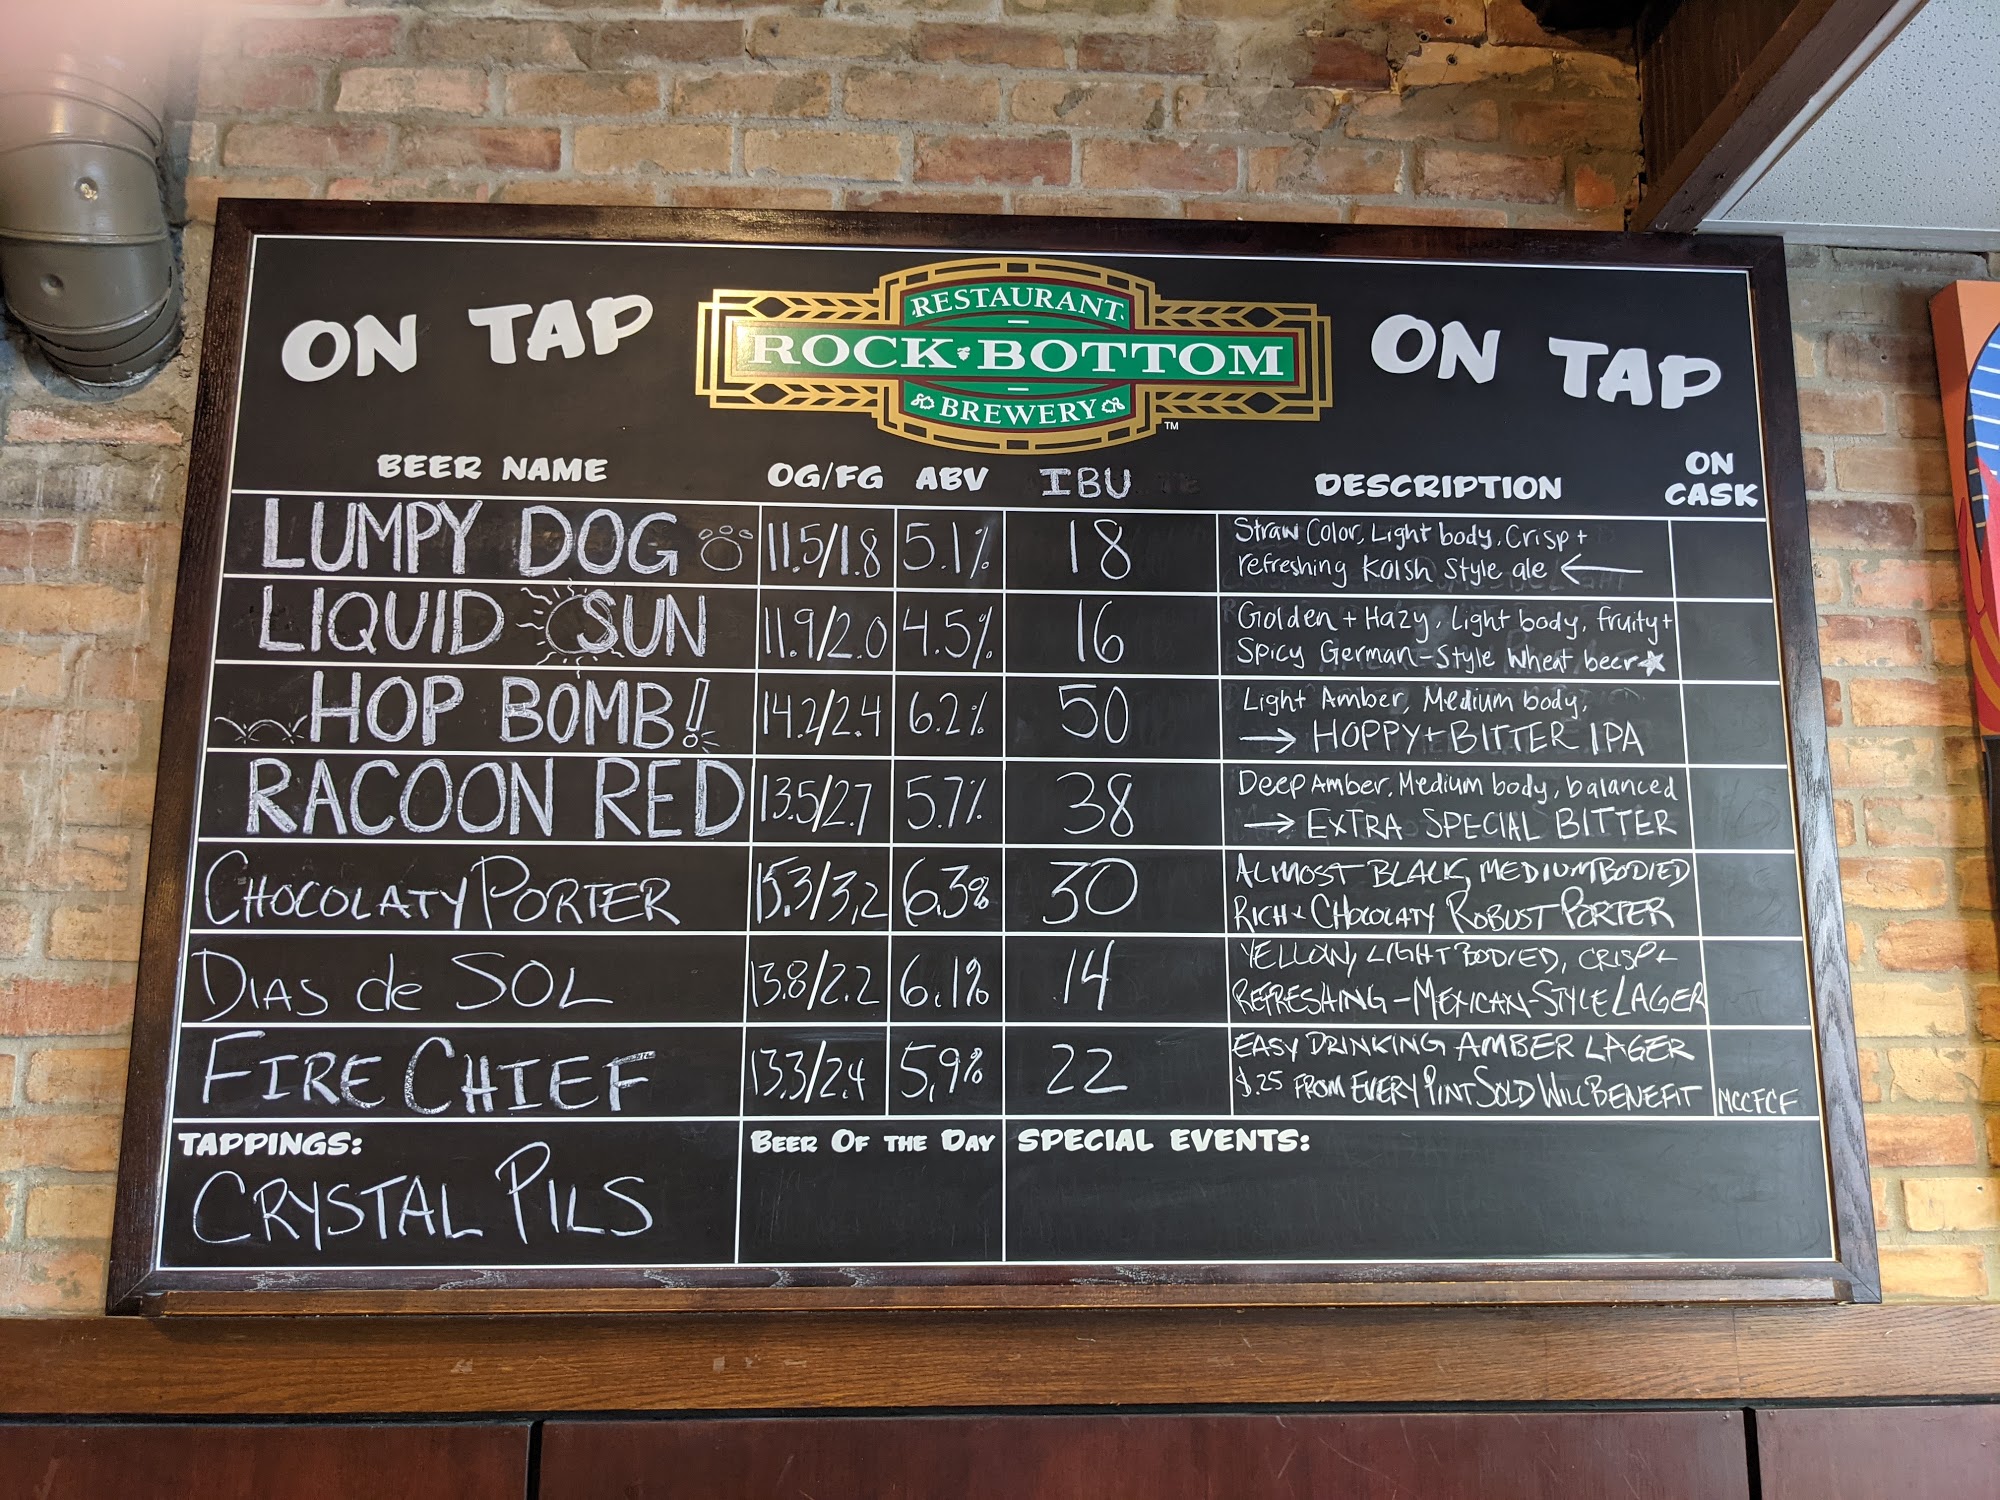 ON TAP
RESTAURANT
ROCK BOTTOM
BREWERY
TM
ON TAP
BEER NAME OG/FG ABV IBU DESCRIPTION ON CASK
LUMPY DOG 11.5/1.8 5.1% 18 Straw Color, Light body, Crisp +
refreshing Kolsh Style ale
LIQUID SUN 11.9/2.0 4.5% 16 Golden + Hazy, Light body, fruity +
Spicy German-Style Wheat beer
HOP BOMB! 14.2/2.4 6.2% 50 Light Amber, Medium body,
→ HOPPY + BITTER IPA
RACOON RED 13.5/2.7 5.7% 38 Deep Amber, Medium body, balanced
→ EXTRA SPECIAL BITTER
CHOCOLATY PORTER 15.3/3.2 6.3% 30 ALMOST BLACK, MEDIUM BODIED
RICH + CHOCOLATY ROBUST PORTER
DIAS de SOL 13.8/2.2 6.1% 14 YELLOW, LIGHT BODIED, CRISP +
REFRESHING - MEXICAN-STYLE LAGER
FIRE CHIEF 13.3/2.4 5.9% 22 EASY DRINKING AMBER LAGER
$.25 FROM EVERY PINT SOLD WILL BENEFIT MCCFCF
TAPPINGS: BEER OF THE DAY SPECIAL EVENTS:
CRYSTAL PILS